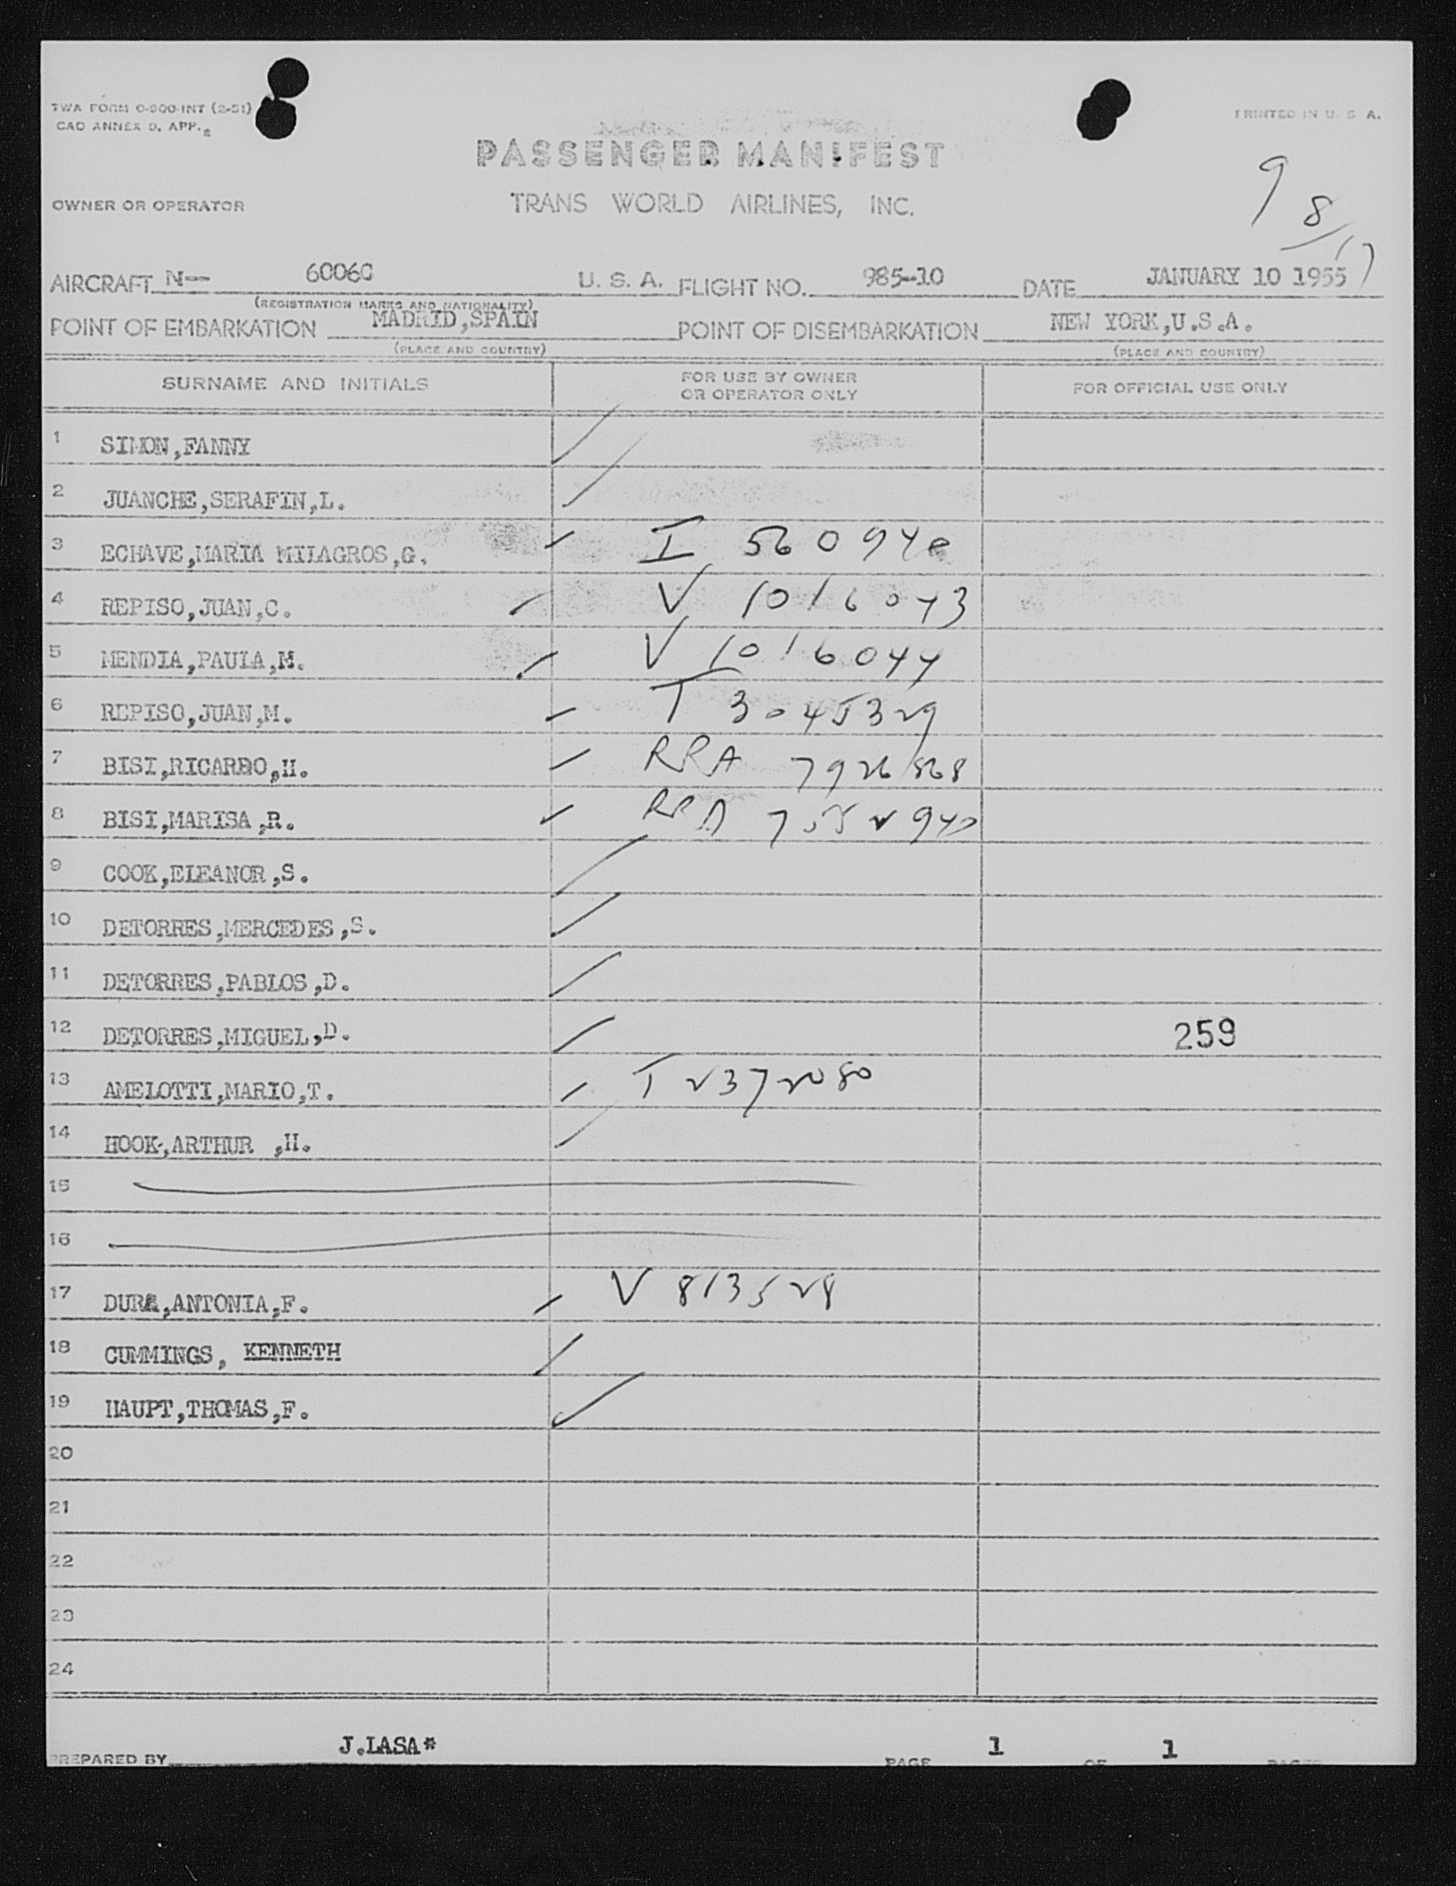 TWA FORM O-900-INT (2-51)
CAO ANNEX 9, APP. 2
PRINTED IN U. S. A.
PASSENGER MANIFEST
OWNER OR OPERATOR
TRANS WORLD AIRLINES, INC.
9 8/17
AIRCRAFT N-- 6006C U. S. A. FLIGHT NO. 985-10 DATE JANUARY 10 1955
(REGISTRATION MARKS AND NATIONALITY)
POINT OF EMBARKATION MADRID,SPAIN POINT OF DISEMBARKATION NEW YORK,U.S.A.
(PLACE AND COUNTRY) (PLACE AND COUNTRY)
SURNAME AND INITIALS FOR USE BY OWNER OR OPERATOR ONLY FOR OFFICIAL USE ONLY
1 SIMON,FANNY
2 JUANCHE,SERAFIN,L.
3 ECHAVE,MARIA MILAGROS,G. I 560940
4 REPISO,JUAN,C. V 1016043
5 MENDIA,PAULA,M. V 1016044
6 REPISO,JUAN,M. T 3045329
7 BISI,RICARDO,H. RRA 7926868
8 BISI,MARISA,R. RRA 7552940
9 COOK,ELEANOR,S.
10 DETORRES,MERCEDES,S.
11 DETORRES,PABLOS,D.
12 DETORRES,MIGUEL,D. 259
13 AMELOTTI,MARIO,T. T 2372080
14 HOOK,ARTHUR ,H.
15
16
17 DURA,ANTONIA,F. V 813528
18 CUMMINGS, KENNETH
19 HAUPT,THOMAS,F.
20
21
22
23
24
PREPARED BY J.LASA* PAGE 1 OF 1 PAGES